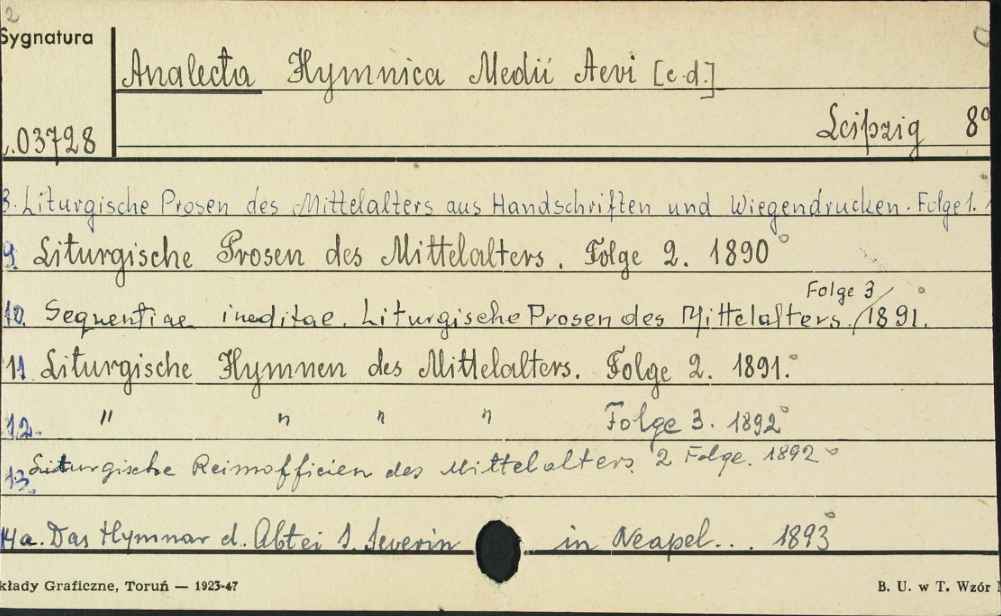 2
Sygnatura
Analecta Hymnica Medii Aevi [c.d.]
03728
Leipzig 8°
8. Liturgische Prosen des Mittelalters aus Handschriften und Wiegendrucken. Folge 1.
9. Liturgische Prosen des Mittelalters. Folge 2. 1890°
Folge 3
10. Sequentiae ineditae. Liturgische Prosen des Mittelalters. / 1891.
11. Liturgische Hymnen des Mittelalters. Folge 2. 1891.°
12. " " " " Folge 3. 1892°
13. Liturgische Reimofficien des Mittelalters 2 Folge. 1892°
14a. Das Hymnar d. Abtei S. Severin in Neapel... 1893°
kłady Graficzne, Toruń — 1923-47
B. U. w T. Wzór